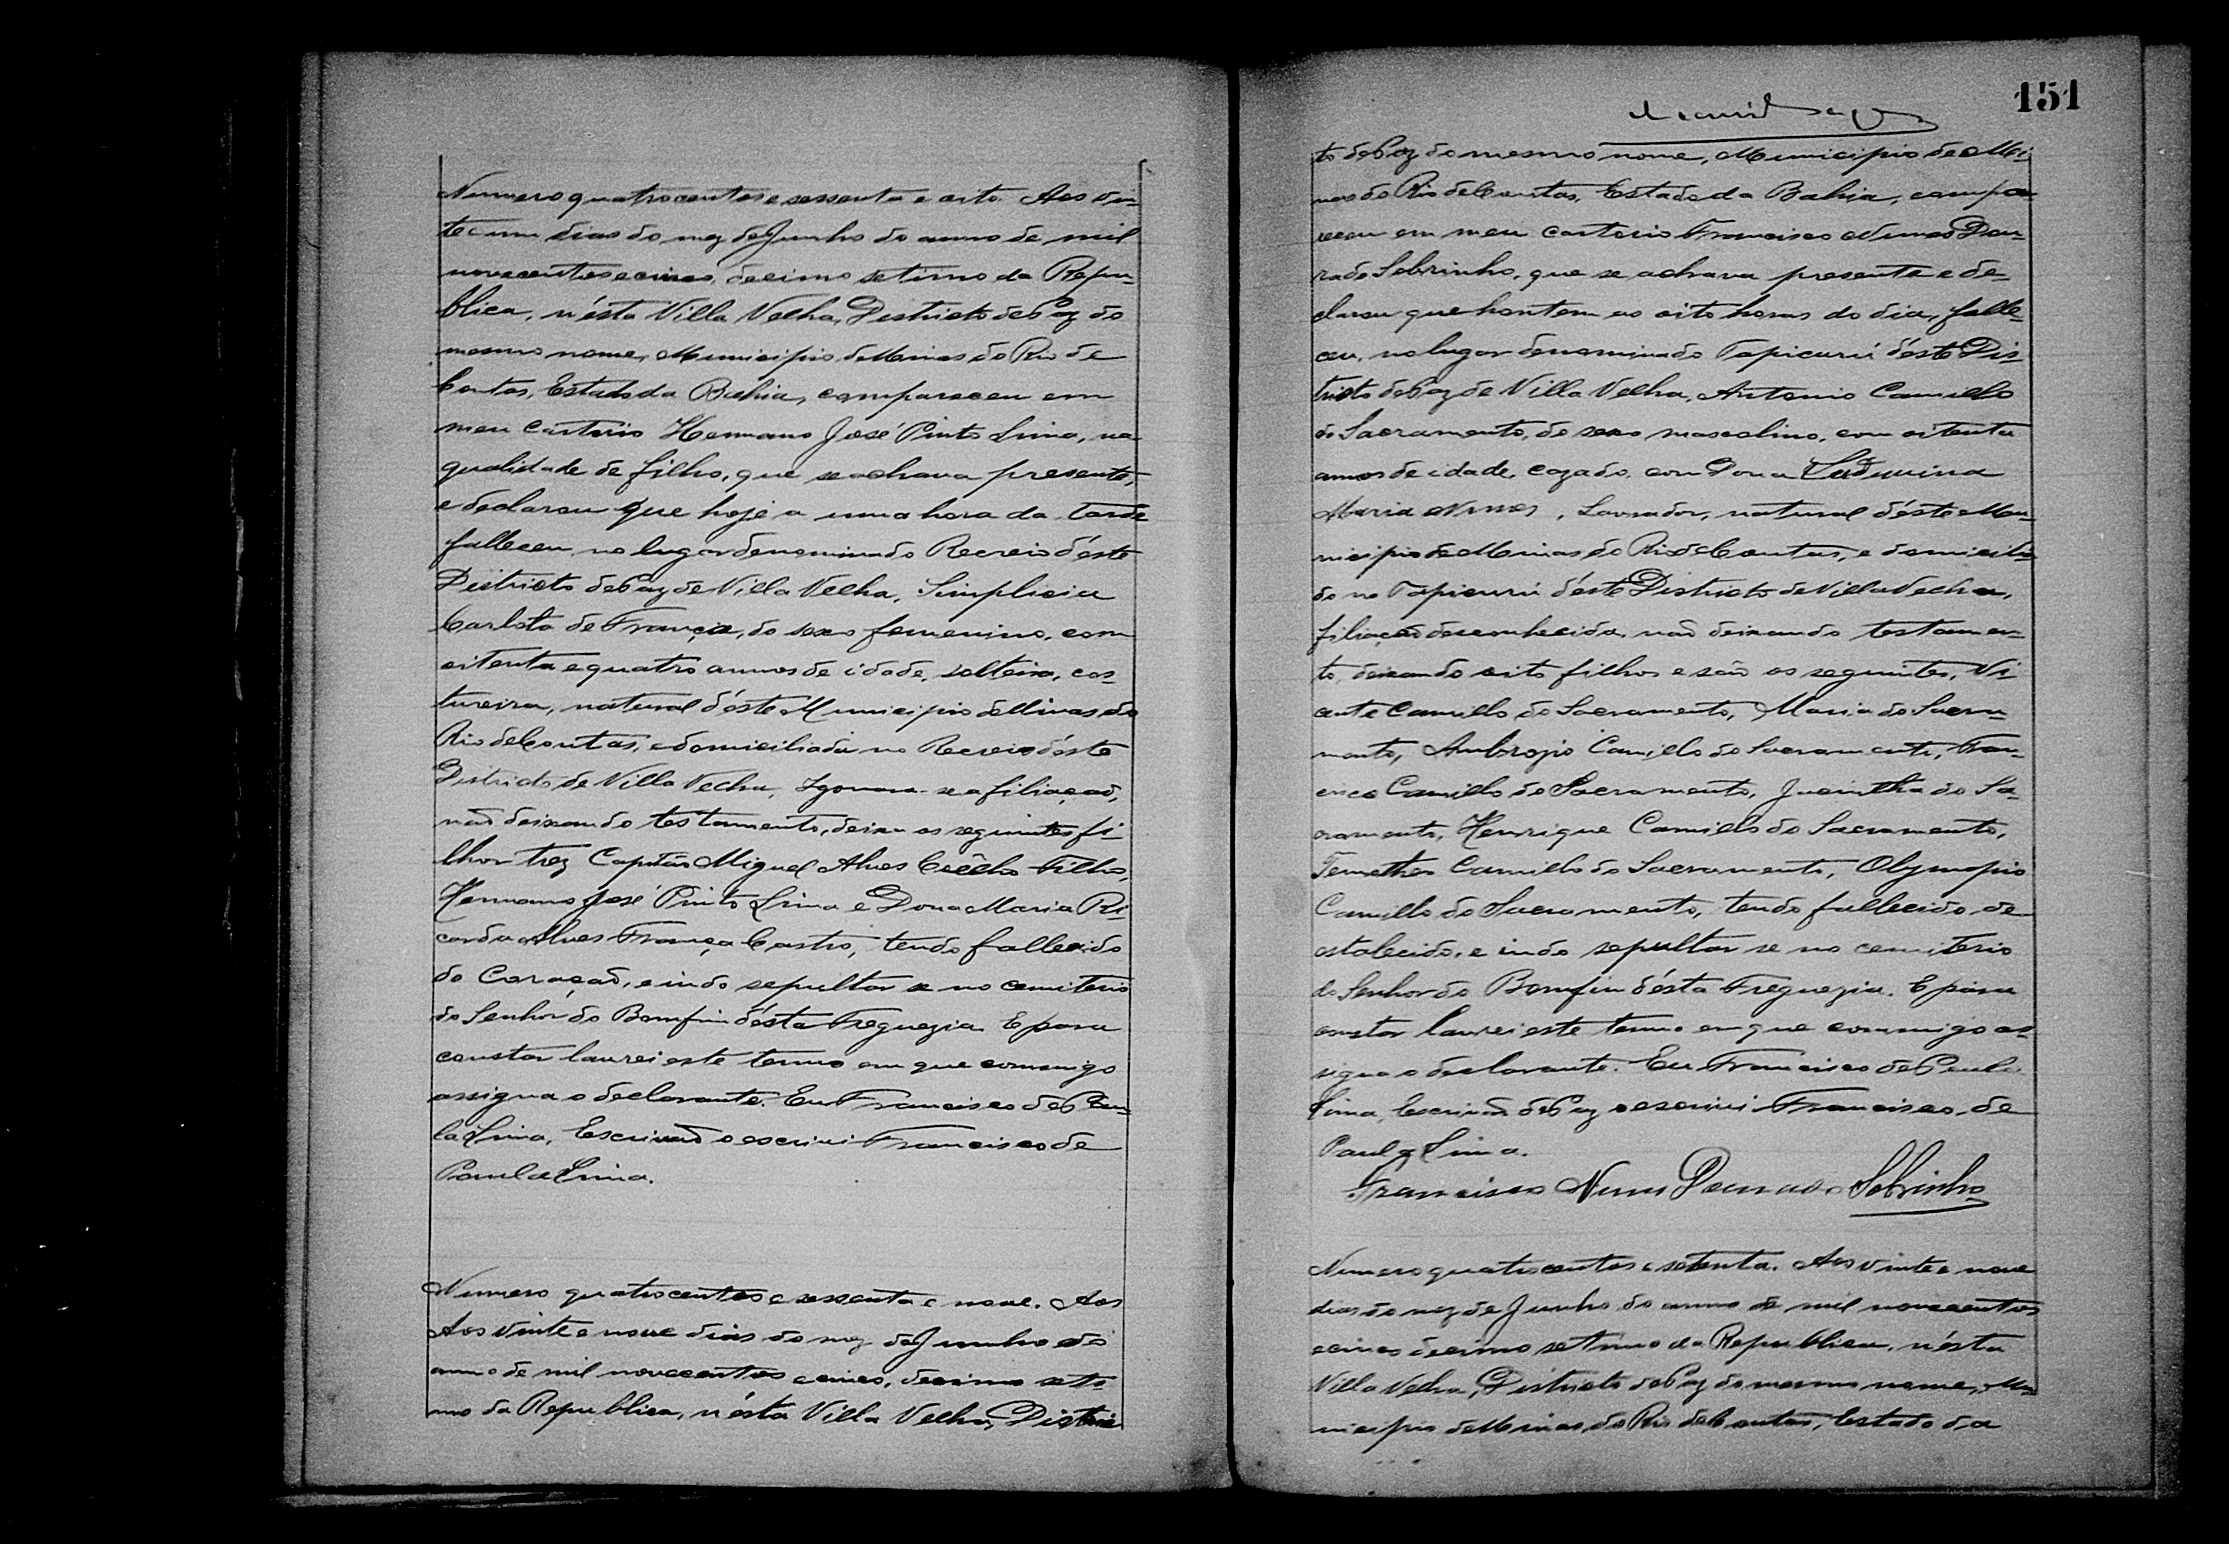 Numero quatrocentos e sessenta e oito. Aos vin-
te e um dias do mez de Junho do anno de mil
novecentos e cinco, decimo setimo da Repu-
blica, n'ésta Villa Velha, Districto de Paz do
mesmo nome, Municipio de Minas do Rio de
Contas, Estado da Bahia, compareceu em
meu cartorio Hermano José Pinto Lima, na
qualidade de filho, que se achava presente,
e declarou que hoje a uma hora da tarde
falleceu no lugar denominado Recreio d'éste
Districto de Paz de Villa Velha, Simplicia
Carlota de França, do sexo femenino, com
oitenta e quatro annos de idade, solteira, cos-
tureira, natural d'éste Municipio de Minas do
Rio de Contas, e domiciliada no Recreio d'éste
Districto de Villa Velha, Ignora-se a filiação,
não deixando testamento, deixa os seguintes fi-
lhos trez Capitão Miguel Alves Coêlho Filho,
Hermano José Pinto Lima e Dona Maria Ri-
carda Alves França Castro, tendo fallecido
do Coração, e indo sepultar se no cemiterio
do Senhor do Bomfim d'ésta Freguezia. E para
constar lavrei este termo em que commigo
assigna o declarante. Eu Francisco de Pau-
la Lima, Escrivão o escrivi Francisco de
Paula Lima.
Numero quatrocentos e sessenta e nove. Aos
Aos vinte e nove dias do mez de Junho do
anno de mil novecentos e cinco, decimo seti-
mo da Republica, n'ésta Villa Velha, Distric
151
to de Paz do mesmo nome, Municipio de Mi-
nas do Rio de Contas, Estado da Bahia, compa-
receu em meu cartorio Francisco Nunes Dou-
rado Sobrinho, que se achava presente e de-
clarou que hontem as oito horas do dia, falle-
ceu, no lugar denominado Tapicurú d'éste Dis-
tricto de Paz de Villa Velha, Antonio Camillo
do Sacramento, do sexo mascolino, com oitenta
annos de idade, cazado, com Dona
Maria Nunes, Lavrador, natural d'éste Mu-
nicipio de Minas do Rio de Contas, e domicilia-
do no Tapicurú d'éste Districto de Villa Velha,
filiação desconhecida, não deixando testamen-
to, deixando oito filhos e são os seguintes, Vi-
cente Camillo do Sacramento, Maria do Sacra-
mento, Ambrozio Camillo do Sacramento, Fran-
cisco Camillo do Sacramento, Jacintha do Sa-
cramento, Henrique Camillo do Sacramento,
Camillo do Sacramento, Olympio
Camillo do Sacramento, tendo fallecido de
estalecido, e indo sepultar se no cemiterio
do Senhor do Bomfim d'ésta Freguezia. E para
constar lavrei este termo em que commigo as-
signa o declarante. Eu Francisco de Paula
Lima, Escrivão de Paz o escrivi Francisco de
Paula Lima.
Francisco Nunes Dourado Sobrinho
Numero quatrocentos e setenta. Aos vinte e nove
dias do mez de Junho do anno de mil novecentos
e cinco decimo setimo da Republica, n'ésta
Villa Velha, Districto de Paz do mesmo nome, Mu-
nicipio de Minas do Rio de Contas, Estado da